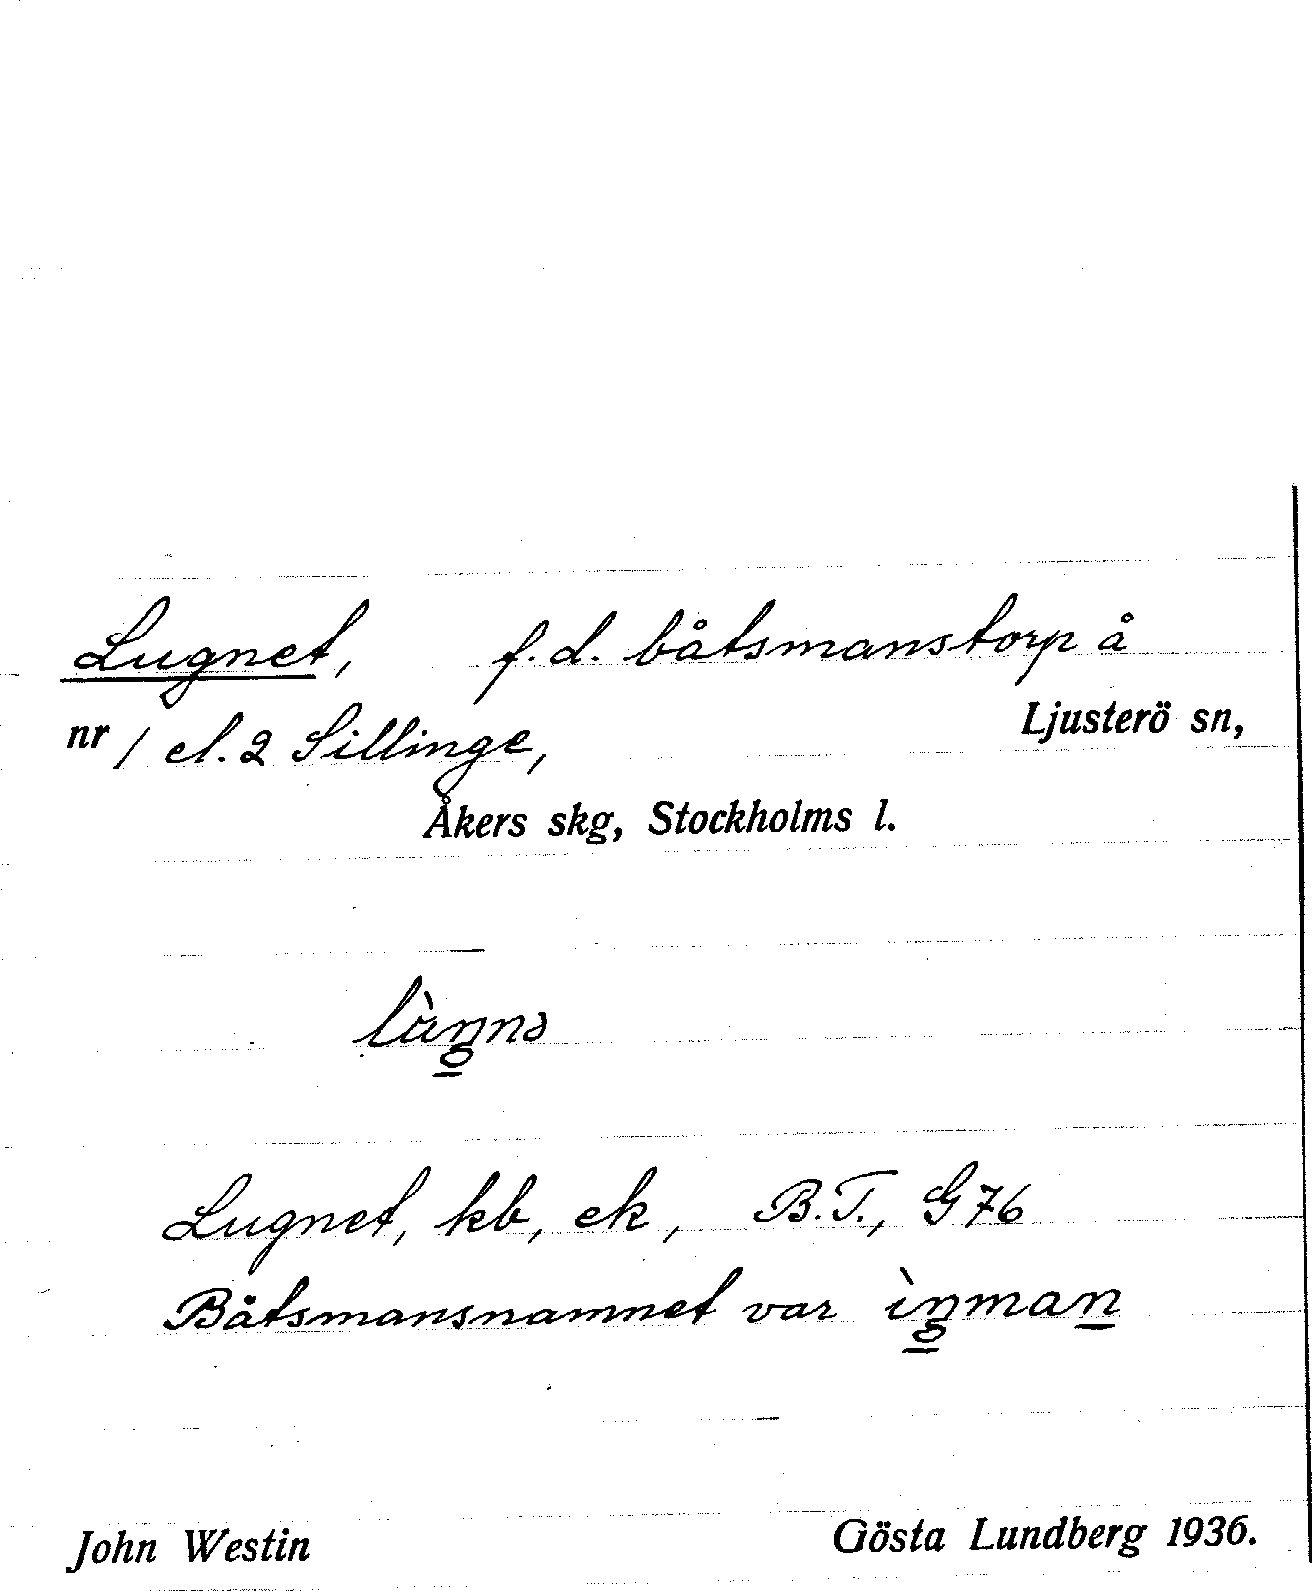 Lugnet, f.d. båtsmanstorp å
Ljusterö sn,
nr 1 el. 2 Sillinge,
Åkers skg, Stockholms l.
Lugnet, kb, ek, B.T., G 76
Båtsmansnamnet var ìŋman
John Westin Gösta Lundberg 1936.